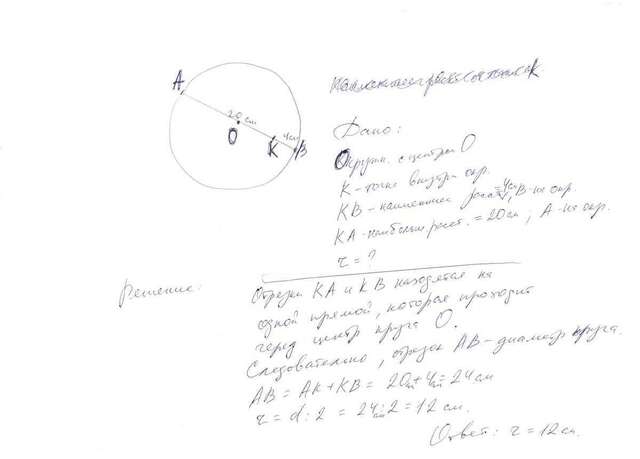 A
20 см
O
K
4см
B
Дано:
Окружн. с центром O
K - точка внутри окр.
KB - наименьшее расст. = 4см, B - на окр.
KA - наибольш. расст. = 20см, A - на окр.
r = ?
Решение:
Отрезки KA и KB находятся на
одной прямой, которая проходит
через центр круга O.
Следовательно, отрезок AB - диаметр круга.
AB = AK + KB = 20см + 4см = 24 см
r = d : 2 = 24см : 2 = 12 см.
Ответ: r = 12см.